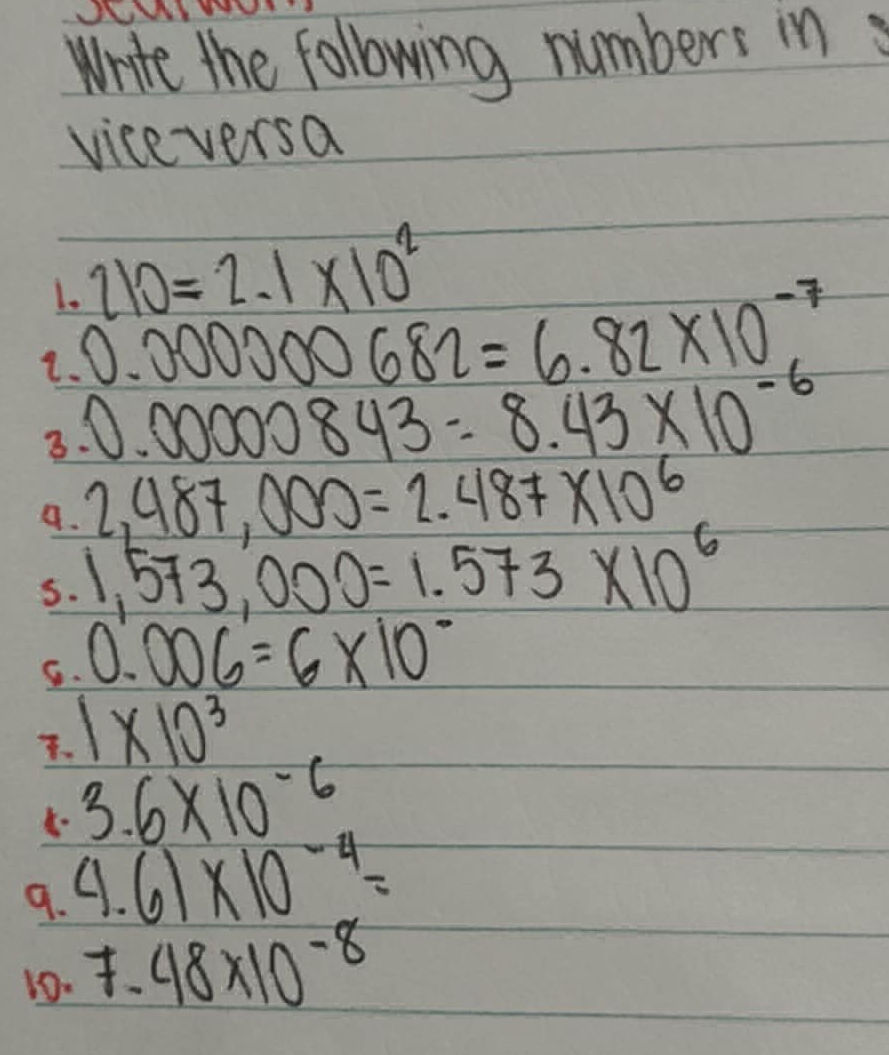 Seatwork
Write the following numbers in s
vice-versa
1. 210 = 2.1 X 10²
2. 0.000000682 = 6.82 X 10⁻⁷
3. 0.00000843 = 8.43 X 10⁻⁶
4. 2,487,000 = 2.487 X 10⁶
5. 1,573,000 = 1.573 X 10⁶
6. 0.006 = 6 X 10⁻
7. 1 X 10³
8. 3.6 X 10⁻⁶
9. 4.61 X 10⁻⁴ =
10. 7.48 X 10⁻⁸